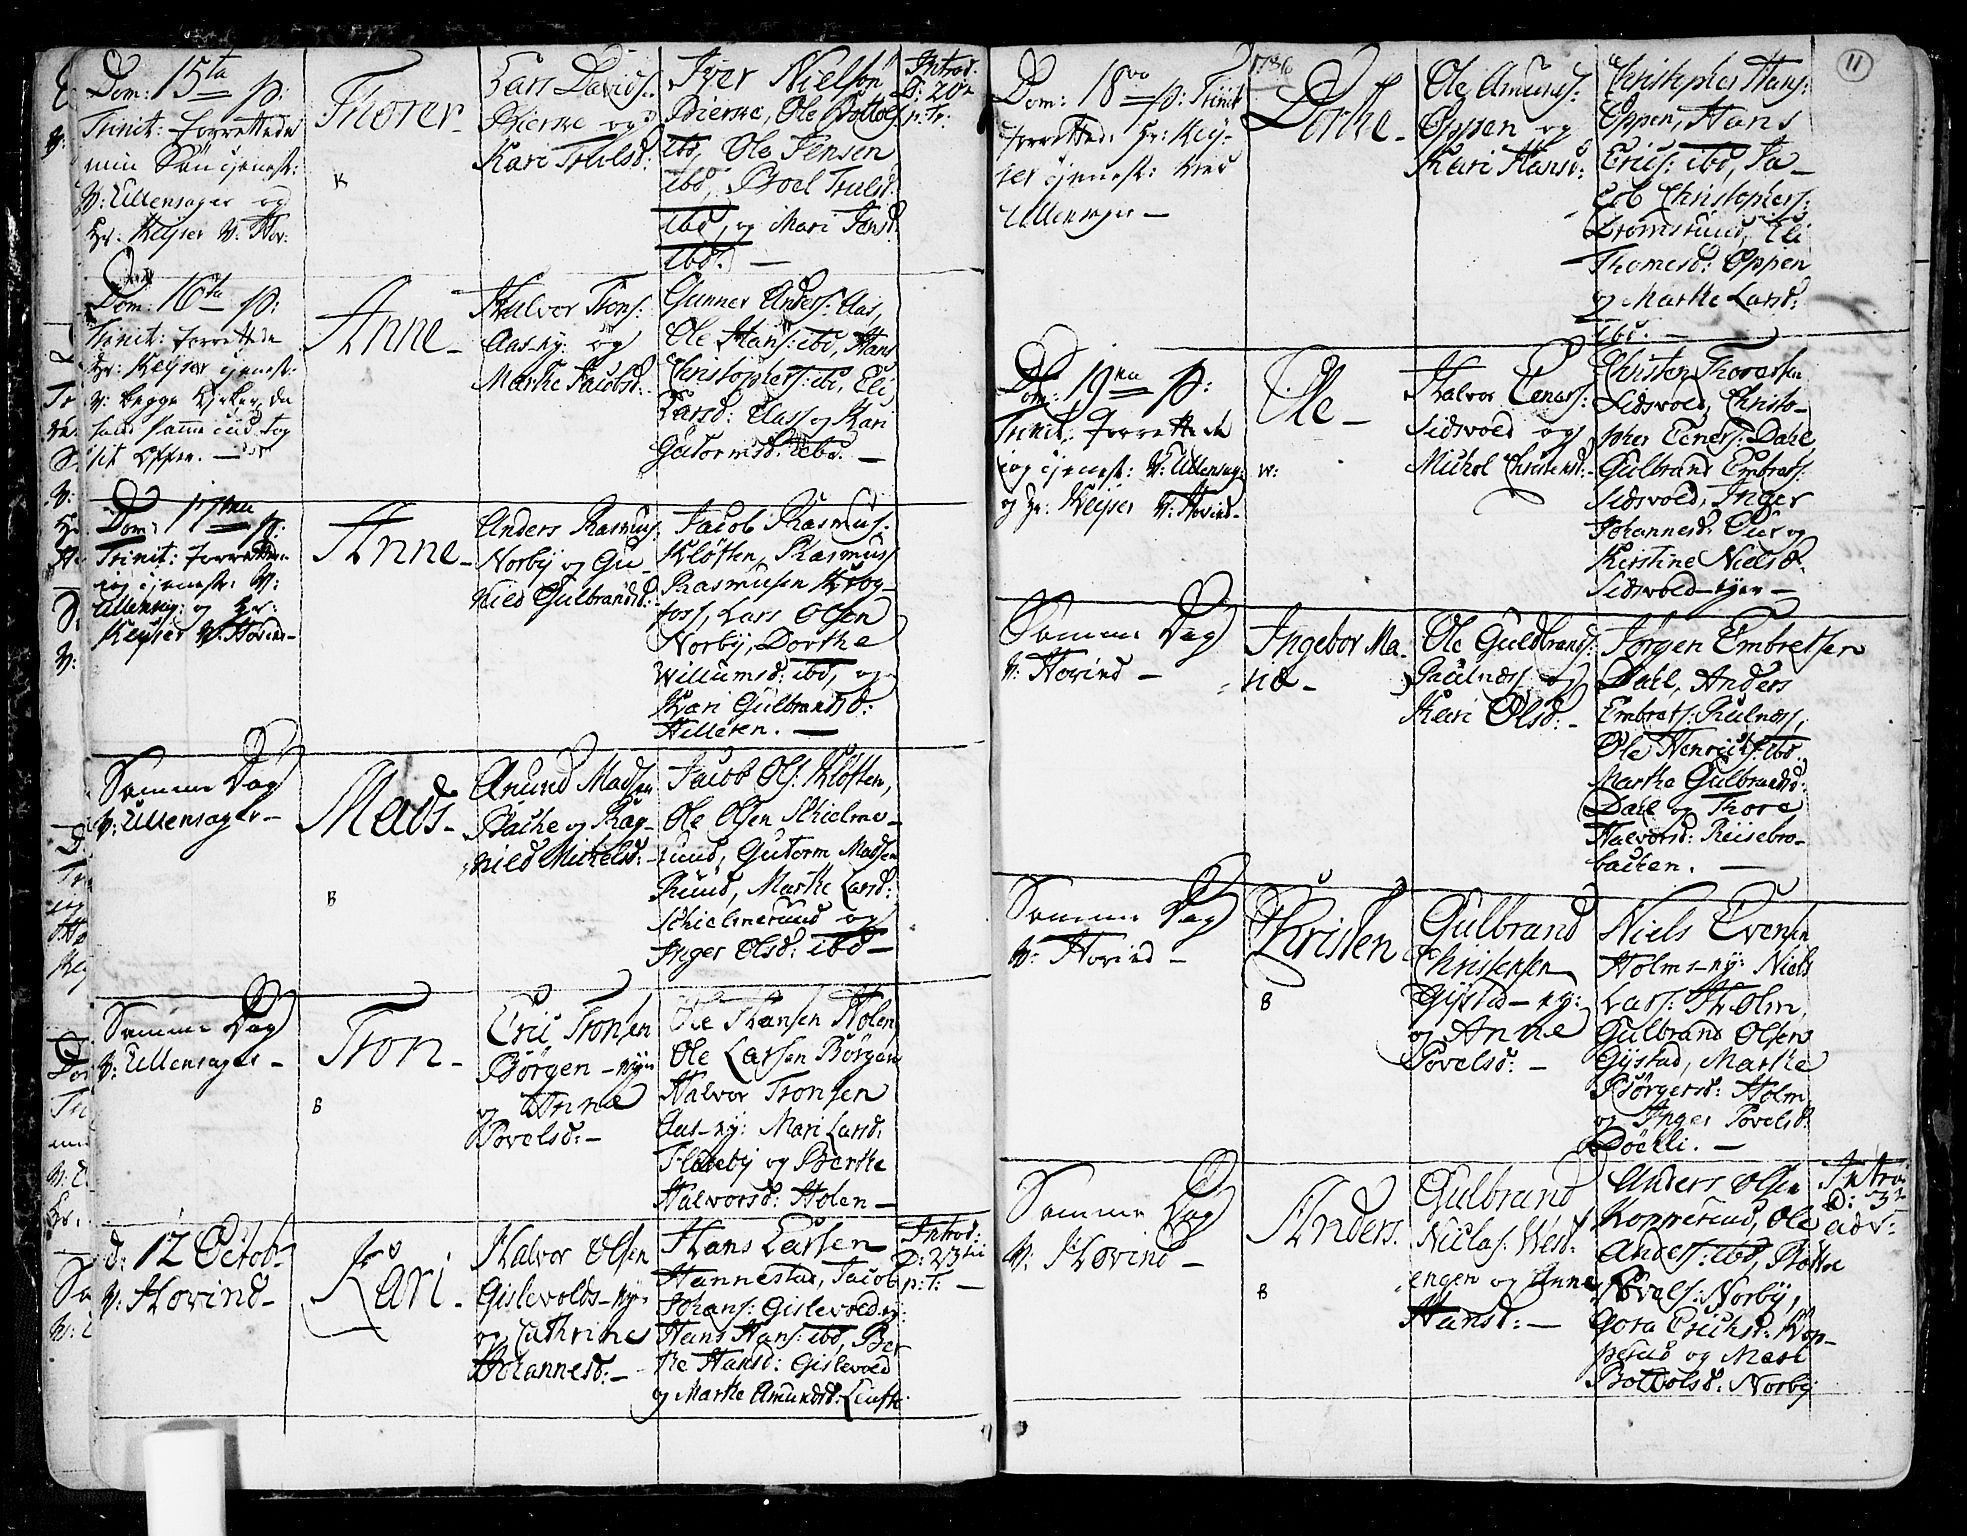 Dom: 15ta p:
Trinit: forrettede
min Sön tjenest:
V: Ullensager og
Hr: Keyser V: Hov:
Thorer
Lars Davids:
Bierke og
Kari Trulsd:
Iver Nielsen
Bierke, Ole Bottols
ibd, Ole Jensen
ibd, Boel Trulsd:
ibd, og Mari Jensd:
ibd. —
Introd:
D: 20
p: Tr:
Dom: 16ta p:
Trinit: forrettede
Hr: Keyser tjenest:
V: begge Kirker, da
hand samme tid tog
sit Offer. —
Anne
Halvor Trons:
Aas-ny: og
Marthe Jacobsd:
Gunner Anders: Aas,
Ole Hans: ibd, Hans
Christophers: ibd, Eli
Larsd: Aas og Kari
Gutormsd: ibd. —
Dom: 17ma p:
Trinit: forrettede
iog tjenest: V:
Ullensag: og Hr:
Keyser V: Hovind —
Anne
Anders Rasmus:
Norby og Gu-
nild Gulbrandsd:
Jacob Rasmus:
Kløften, Rasmus
Rasmusen Krog-
foss, Lars Olsen
Norby, Dorthe
Willumsd: ibd, og
Kari Gulbrandsd:
Hilleren. —
Samme Dag
V: Ullensager —
Mads
B
Amund Madsen
Bache og Rag-
nild Michelsd:
Jacob Ols: Kløften,
Ole Olsen Schielme-
rund, Gutorm Madsen
Ruud, Marthe Larsd:
Schielmerund og
Inger Olsd: ibd —
Samme Dag
V: Ullensager —
Tron
B
Eric Tronsen
Börgen -nyer
og Anne
Povelsd: —
Ole Hansen Holen,
Ole Larsen Börgen
Halvor Tronsen
Aas-ny: Mari Larsd:
og Berthe
Halvorsd: Holen —
d: 12 Octob:
V: Hovind —
Kari
Halvor Olsen
Gislevolds-ny:
og Cathrine
Johannesd: —
Hans Larsen
Hannestad, Jacob
Johans: Gislevold-ny:
Hans Hans: ibd, Ber-
the Hansd: Gislevold
og Marthe Amundsd:
Introd:
D: 23tii
p: T: —
11
1736
Dom: 18va p: Trinit
forrettede Hr: Key-
ser tjenest: ved
Ullensager —
Dorthe
Ole Amunds:
Oppen og
Kari Hansd:
Christopher Hans:
Oppen, Hans
Erics: ibd, Ja-
cob Christophers:
Dromsrund, Eli
Thomesd: Oppen
og Marthe Larsd:
ibd: —
Dom: 19na p:
Trinit. forrettede
iog tjenest: V: Ullensag:
og Hr: Keyser V: Hovind —
Ole
Halvor Eeners:
Eidsvold og
Michol Christensd:
Christen Thorersen
Eidsvold, Christo-
pher Eeners: Dahl
Gulbrand Embrets:
Eidsvold, Inger
Johannesd: og
Kierstine Nielsd:
Eidsvold-nyer —
Samme Dag
V: Hovind —
Ingebor Ma-
ria
Ole Guldbrands:
Paulness og
Kari Olsd: —
Jörgen Embretsen
Dahl, Anders
Embrets: Pulness,
Ole Henrichs: ibd.
Marthe Gulbrandsd:
Dahl og Thore
Halvorsd: Riisebro-
backen. —
Samme Dag
V: Hovind —
Kristen
B
Gulbrand
Christensen
Gystad-ny:
og Anne
Povelsd: —
Niels Evensen
Holms-ny: Niels
Lars: Holm,
Gulbrand Olsen
Gystad, Marthe
Börgersd: Holm
og Inger Povelsd:
Döchli. —
Samme Dag
V: Hovind —
Anders
B
Gulbrand
Niclas: West-
engen og Anne
Hansd: —
Anders Olsen
Kopperud, Ole
Anders: ibd, Bottol
Povels: Norby,
Gora Erichsd: Kop-
perud og Mari
Bottolsd: Norby
Introd:
D: 3
adv: